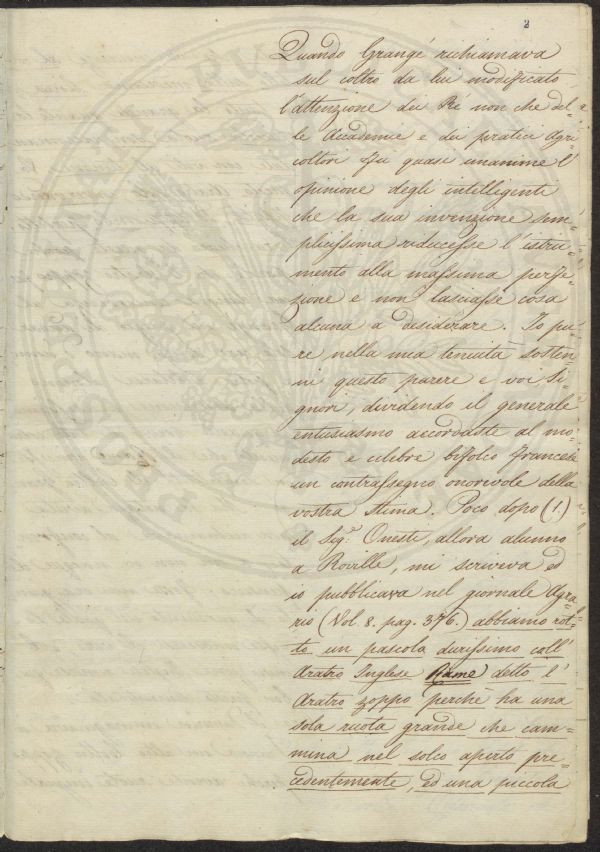 2
Quando Grangé richiamava
sul coltro da lui modificato
l'attenzione dei Rè non che del=
le Accademie e dei pratici Agri=
coltori fu quasi unanime l'
opinione degli intelligenti
che la sua invenzione sem=
plicissima riducesse l'istru=
mento alla massima perfe=
zione e non lasciasse cosa
alcuna a desiderare. Io pu=
re nella mia tenuità sosten
ni questo parere e voi Si=
gnori, dividendo il generale
entusiasmo accordaste al mo=
desto e celebre bifolco francese
un contrassegno onorevole della
vostra stima. Poco dopo (1.)
il Sig.r Onesti, allora alunno
a Roville, mi scriveva ed
io pubblicava nel giornale Agra=
rio (Vol. 8. pag. 376.) abbiamo rot=
to un pascolo durissimo coll'
Aratro Inglese Rame detto l'
Aratro zoppo perchè ha una
sola ruota grande che cam=
mina nel solco aperto pre=
cedentemente, ed una piccola